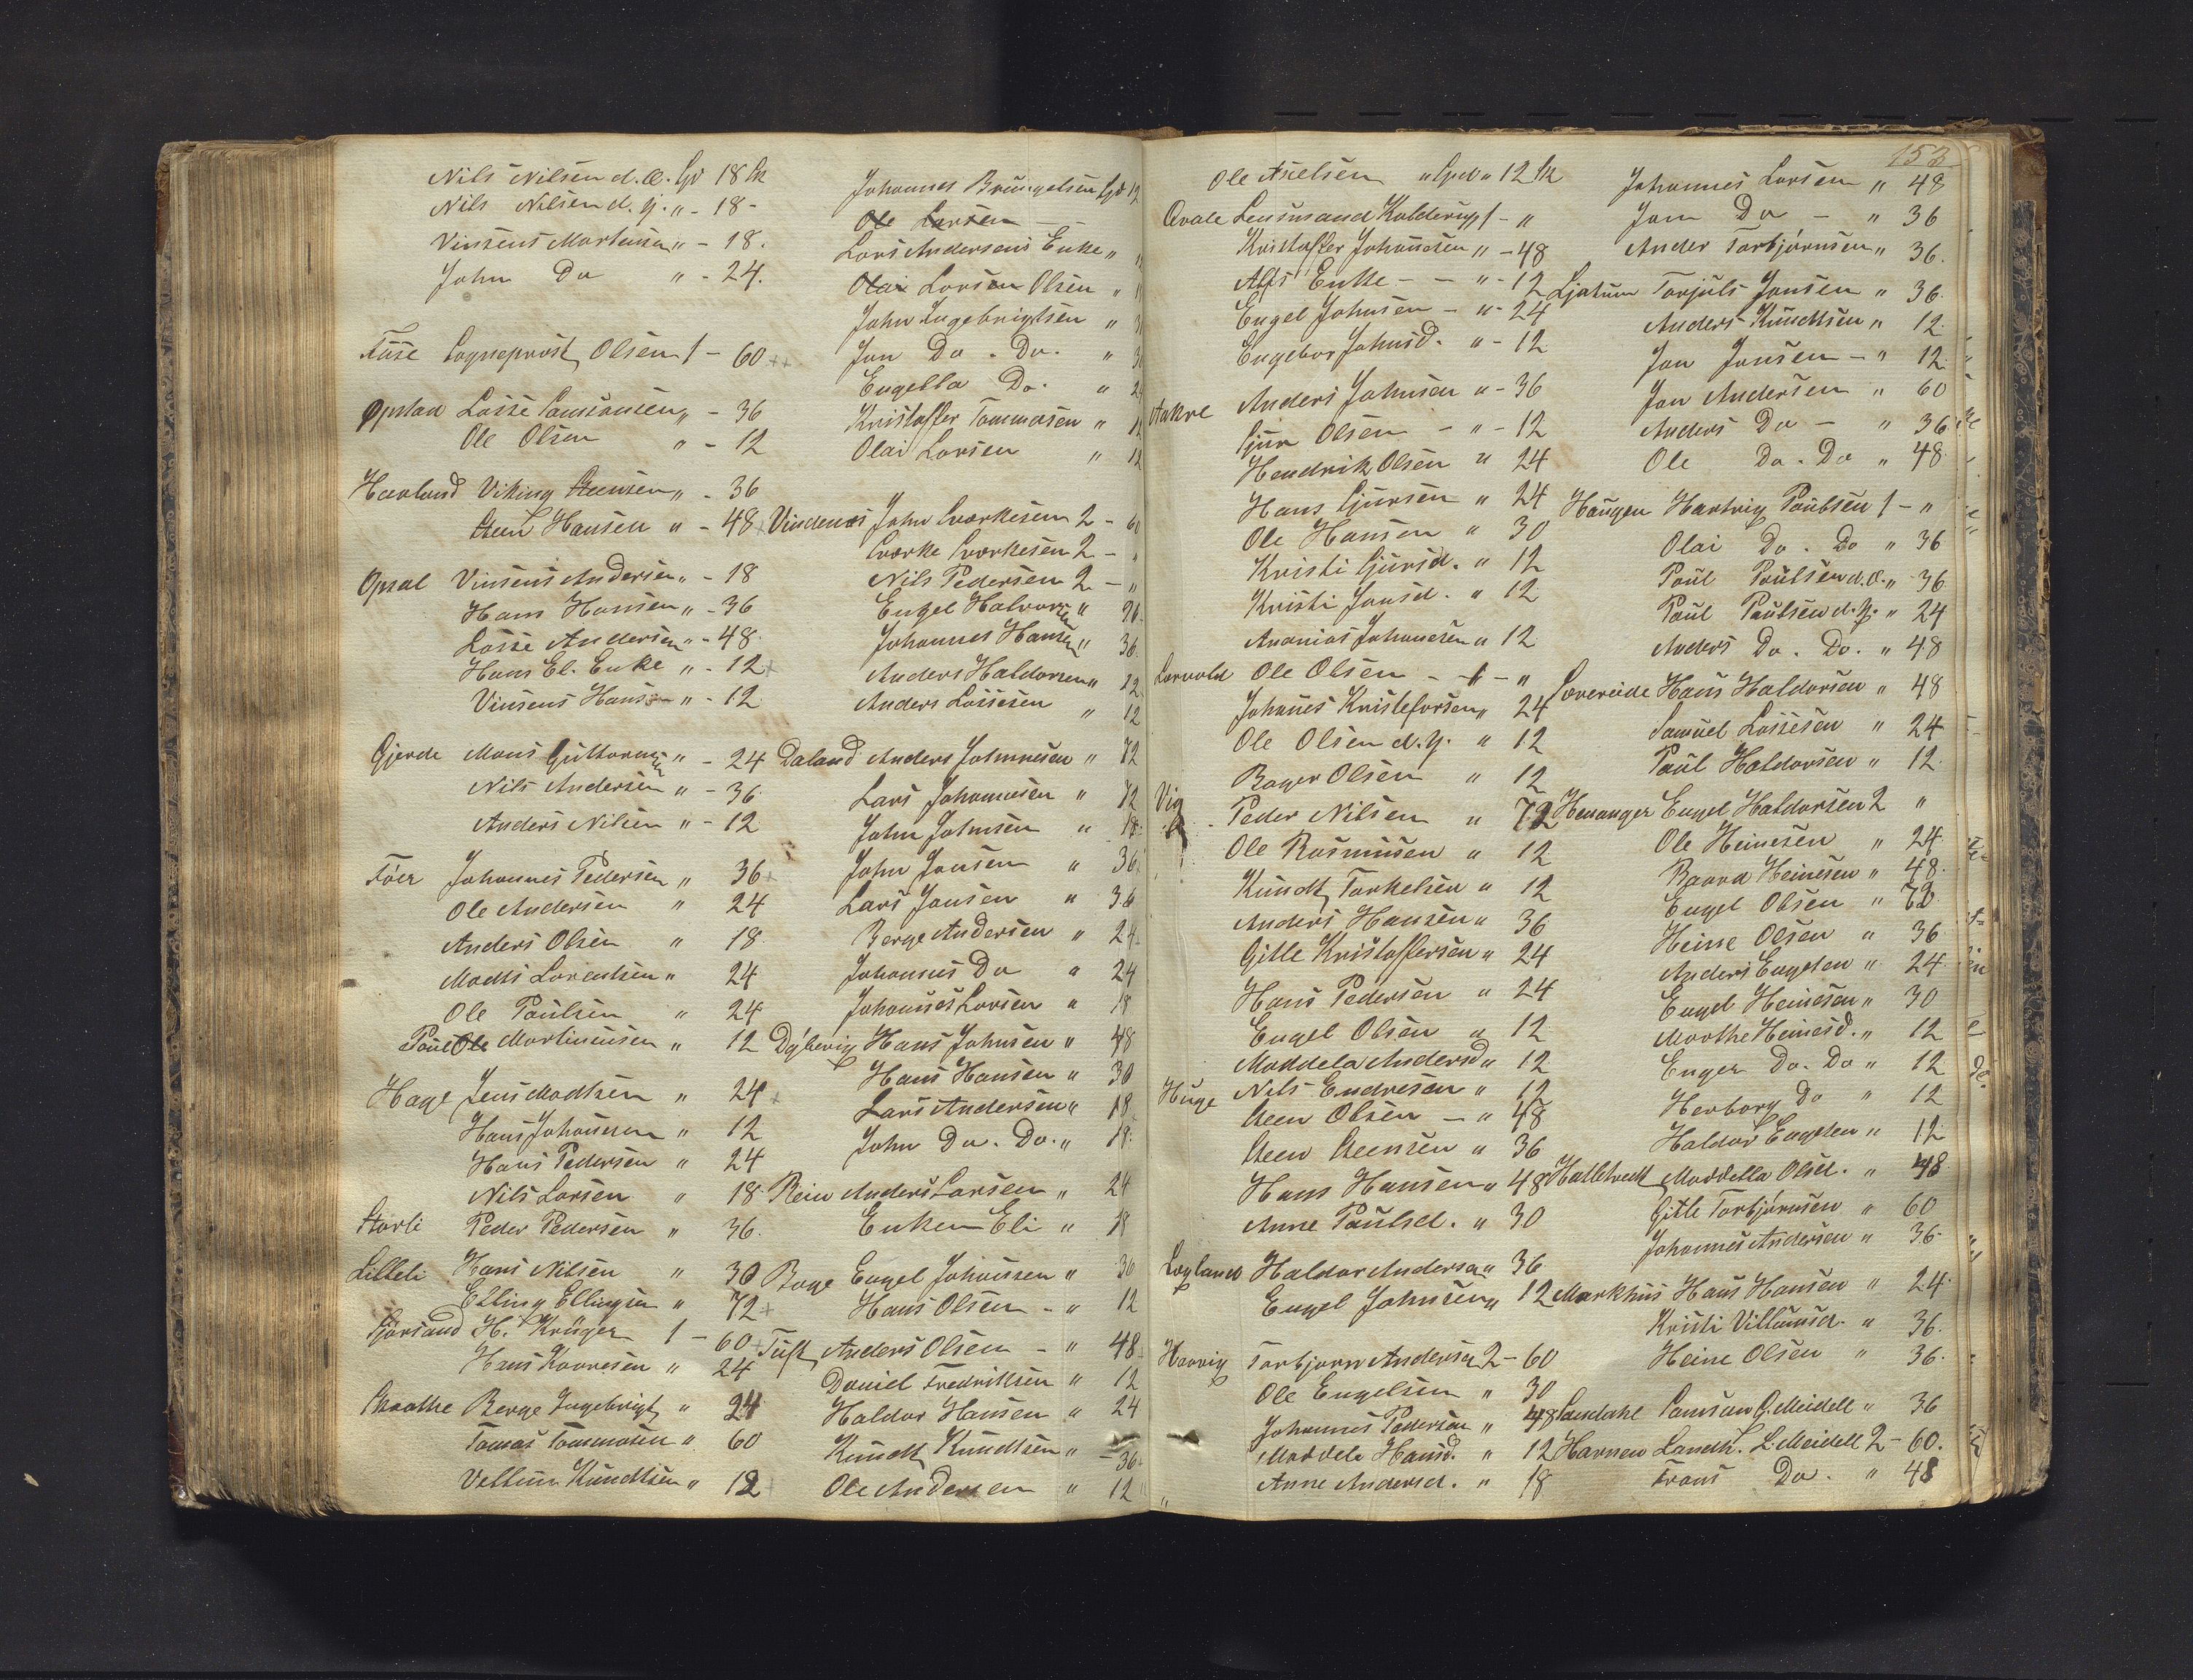 Nils Nilsen d. Æ. Spd 18 Sk
Nils Nilsen d. y. " - 18 -
Vinsens Martensen " - 18.
John Do " - 24.
Fuse Sogneprost Olsen 1 - 60
Opstad Lasse Samsonsen " - 36
Ole Olsen " - 12
Haavland Viking Steensen " - 36
Steen Hansen " - 48
Opsal Vinsens Andersen " - 18
Hans Hansen " - 36
Lasse Andersen " - 48.
Hans El. Enke " - 12
Vinsens Hansen " - 12
Gjerde Mons Guttormsen " - 24
Nils Andersen " - 36.
Anders Nilsen " - 12
Töer Johannes Pedersen " 36
Ole Andersen " 24
Anders Olsen " 18.
Madts Lorentsen " 24
Ole Paulsen " 24
Paul Ole Martinusen " 12
Hage Jens Madtsen " 24
Hans Johansen " 12
Hans Pedersen " 24
Nils Larsen " 18
Storli Peder Pedersen " 36.
Lilleli Hans Nilsen " 30
Elling Ellingsen " 72
Sjörsand H. Krüger 1 - 60
Hans Kaaresen " 24
Skaathe Berge Ingebrigt " 24
Tomas Tommasen " 60
Vellum Knudtsen " 12
Johannes Brüngelsen Spd 12
Ole Larsen - -
Lars Andersens Enke "
Olai Larsen Olsen "
John Ingebrigtsen "
Jon Do. Do. "
Engella Do. "
Kristoffer Tommasen " 12
Olai Larsen " 12
Vindenes John Sværkesen 2 - 60
Sværke Sværkesen 2 - "
Nils Pedersen 2 - "
Engel Halvorsen "
Johannes Hansen " 36.
Anders Haldorsen " 12
Anders Lassesen " 12
Daland Anders Johannesen " 72
Lars Johannesen " 72
John Johnsen " 18.
John Jonsen " 36
Lars Jonsen " 36
Berge Andersen " 24
Johannes Do " 24
Johannes Larsen " 18
Dyhevig Hans Johnsen " 48
Hans Hansen " 30
Lars Andersen " 18
John Do. Do. " 18.
Rein Anders Larsen " 24
Enken Eli " 18
Boge Engel Johansen " 30
Hans Olsen - " 12
Tuft Anders Olsen - " 48
Daniel Fredriksen " 12
Haldor Hansen " 24
Knudt Knudtsen " - 36
Ole Andersen " 12
153
Ole Axelsen " Spd " 12 Sk
Qvale Lensmand Kalderup 1 - "
Kristoffer Johannesen " - 48
Alfs Enke - - " - 12
Engel Johnsen - " - 24
Engebor Johnsd. " - 12
Aakre Anders Johnsen " - 36
Gjur Olsen - " - 12
Hendrik Olsen " 24
Hans Gjursen " 24
Ole Hansen " 30
Kristi Gjursd. " 12
Kristi Jonsd. " 12
Ananias Johanesen " 12
Ole Olsen - 1 - "
Johanes Kristofersen " 24
Ole Olsen d. y. " 12
Roger Olsen " 12
Vig Peder Nilsen " 72
Ole Rasmusen " 12
Knudt Torkelsen " 12
Anders Hansen " 36
Gitle Kristoffersen " 24
Hans Pedersen " 24
Engel Olsen " 12
Maddela Andersd " 12
Huge Nils Endresen " 12
Steen Olsen - " 48
Steen Steensen " 36
Hans Hansen " 48
Anne Paulsd. " 30
Løgland Haldor Andersen " 36
Engel Johnsen " 12
Haavig Torbjørn Andersen 2 - 60
Ole Engelsen " 30
Johannes Pedersen " 48
Maddela Hansd. " 12
Anne Andersd. " 18
Johannes Larsen " 48
Jørn Do - " 36
Ander Torbjørnsen " 36.
Ljatun Torjuls Jonsen " 36.
Anders Knudtsen " 12.
Jon Jonsen - " 12.
Jon Andersen " 60
Anders Do - " 36
Ole Do. Do " 48
Haugen Hartvig Paulsen 1 - "
Olai Do. Do " 36
Paul Paulsen d. Æ. " 36
Paul Paulsen d. y. " 24
Anders Do. Do. " 48
Sævereide Hans Haldorsen " 48
Samuel Lassesen " 24
Paul Haldorsen " 12.
Henanger Engel Haldorsen 2 "
Ole Heinesen " 24.
Baard Heinesen " 48.
Engel Olsen " 72
Heine Olsen " 36
Anders Engelsen " 24.
Engel Heinesen " 30
Marthe Heinesd. " 12
Enger Do. Do " 12
Herborg Do " 12
Haldor Engelsen " 12.
Maddella Olsd. " 48
Gitle Torbjørnsen " 60
Johannes Andersen " 36.
Markhus Hans Hansen " 24.
Kristi Villumsd. " 36.
Heine Olsen " 36.
Samdahl Samson G. Meidell " 36
Havnen Landh. L. Meidell 2 - 60.
Frans Do. " 48